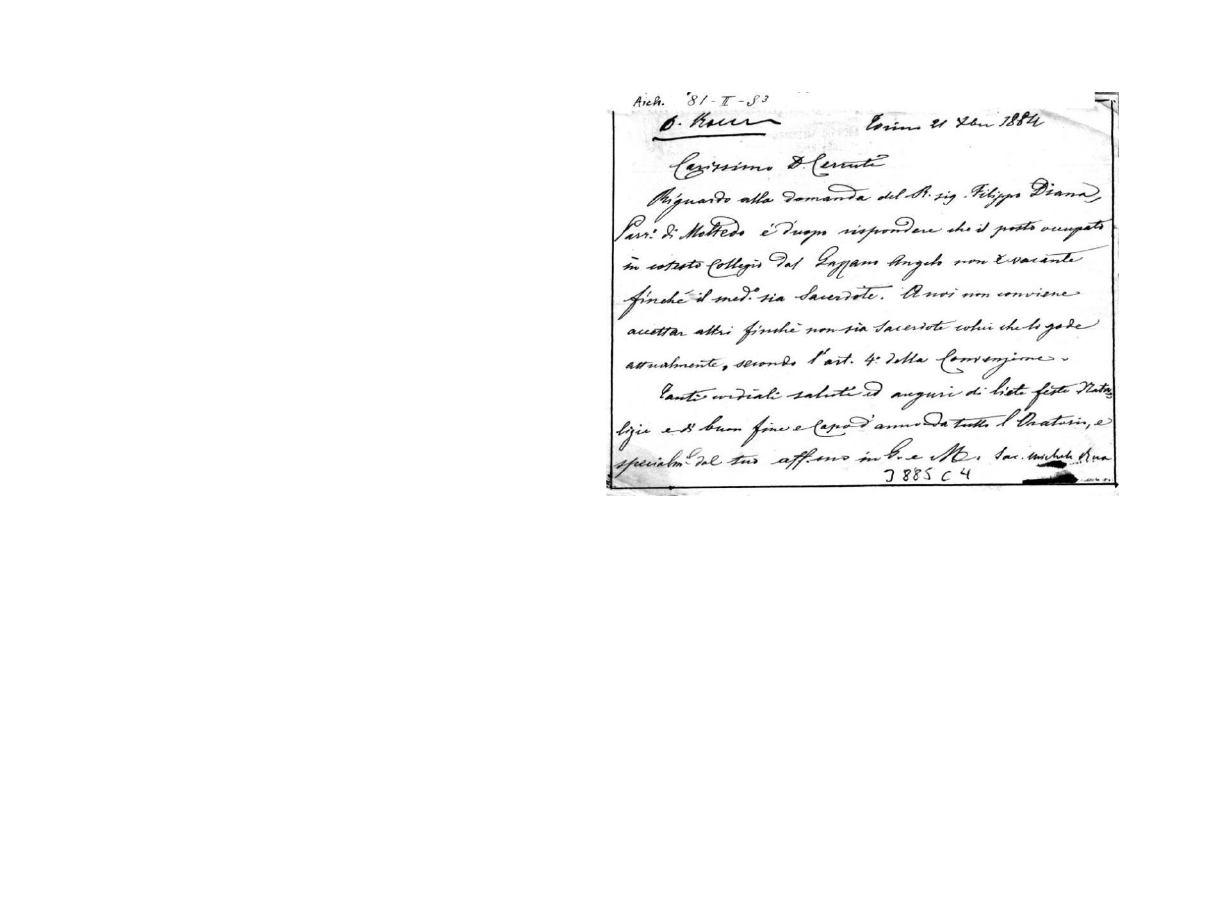 Arch. '81-II-83
D. Rocca
Torino 21 Xbre 1884
Carissimo D. Cerruti
Riguardo alla domanda del R. sig. Filippo Diana,
Parr.o di Moltedo è d'uopo rispondere che il posto occupato
in cotesto Collegio dal Gazzano Angelo non è vacante
finché il med.o sia Sacerdote. A noi non conviene
accettar altri finché non sia Sacerdote colui che lo gode
attualmente, secondo l'art. 4.o della Convenzione.
Tanti cordiali saluti ed auguri di liete feste Nata-
lizie e di buon fine e Capo d'anno da tutto l'Oratorio, e
specialm.e dal tuo aff.mo in G. e M. Sac. Michele Rua
3885 C 4